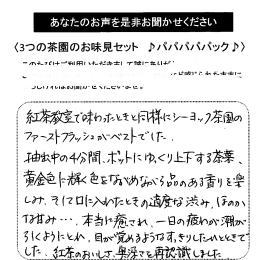 あなたのお声を是非お聞かせください
〈3つの茶園のお味見セット ♪パパパパパック♪〉
このたびはご利用いただきまして誠にありが
紅茶教室で味わったときと同様にシーヨック茶園の
ファーストフラッシュがベストでした。
抽出中の4分間、ポットにゆっくり上下する茶葉、
黄金色に輝く色をながめながら品のある香りを楽
しみ、そして口に入れたときの適度な渋み、ほのか
な甘み…、本当に癒され、一日の疲れが潮が
引くようにとれ、目が覚めるようなすっきりしたひとときで
した。紅茶のおいしさ、奥深さを再認識しました